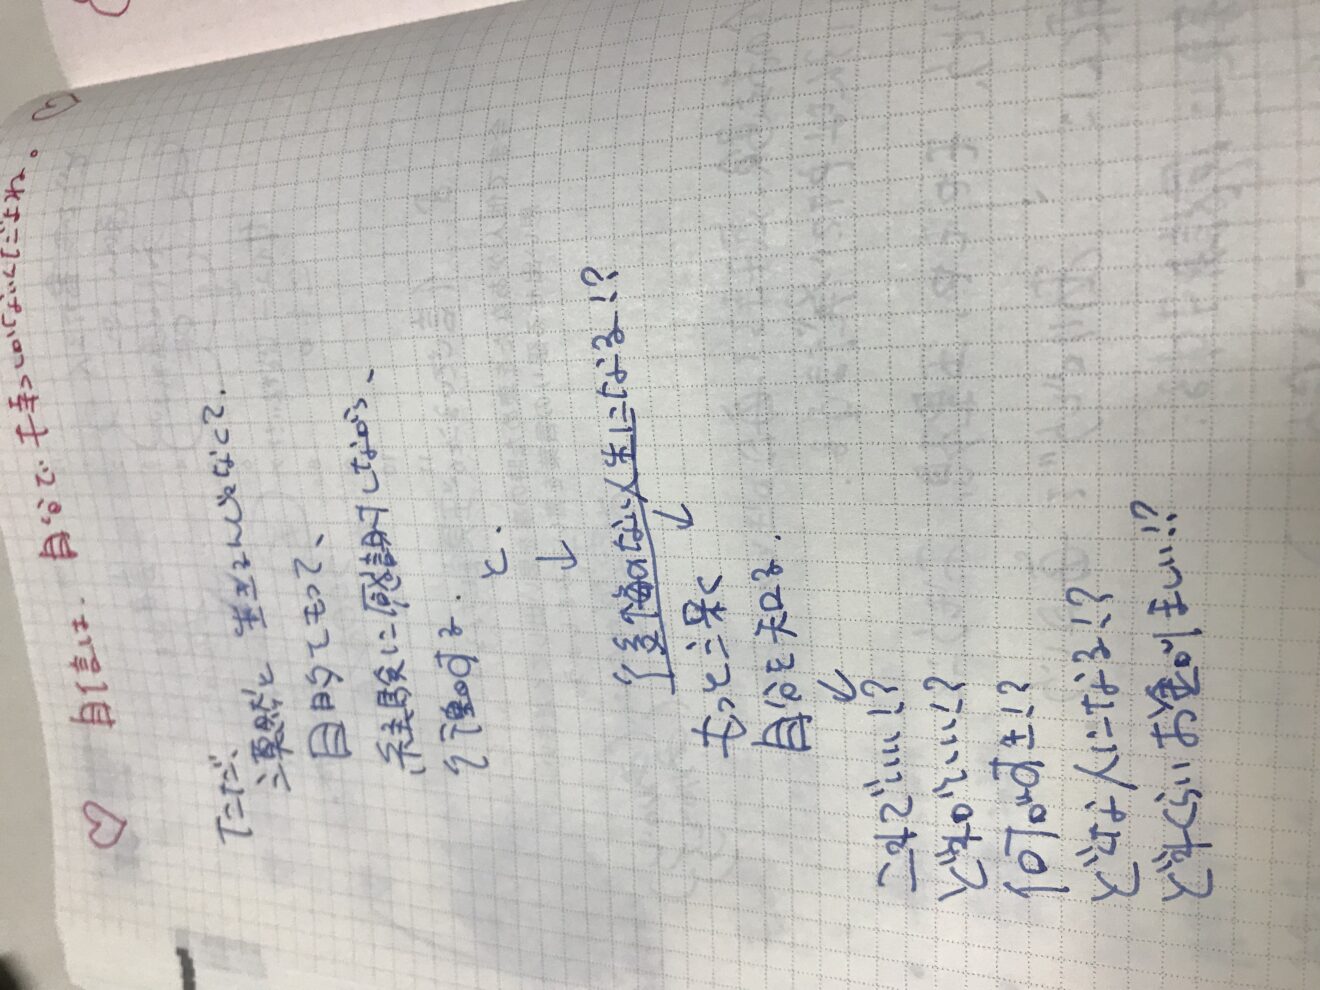 ♡ 自信は、自分で育てないといけないんだよね。♡
ただ、
漠然と生きるんじゃなくて、
目的をもって、
経験に感謝しながら、
と。
↓
後悔のない人生になる!?
↓
もっと深く
自分を知る。
↓
これでいい!?
どれがいい!?
何が好き!?
どんな人になる!?
どれくらいお金がほしい!?